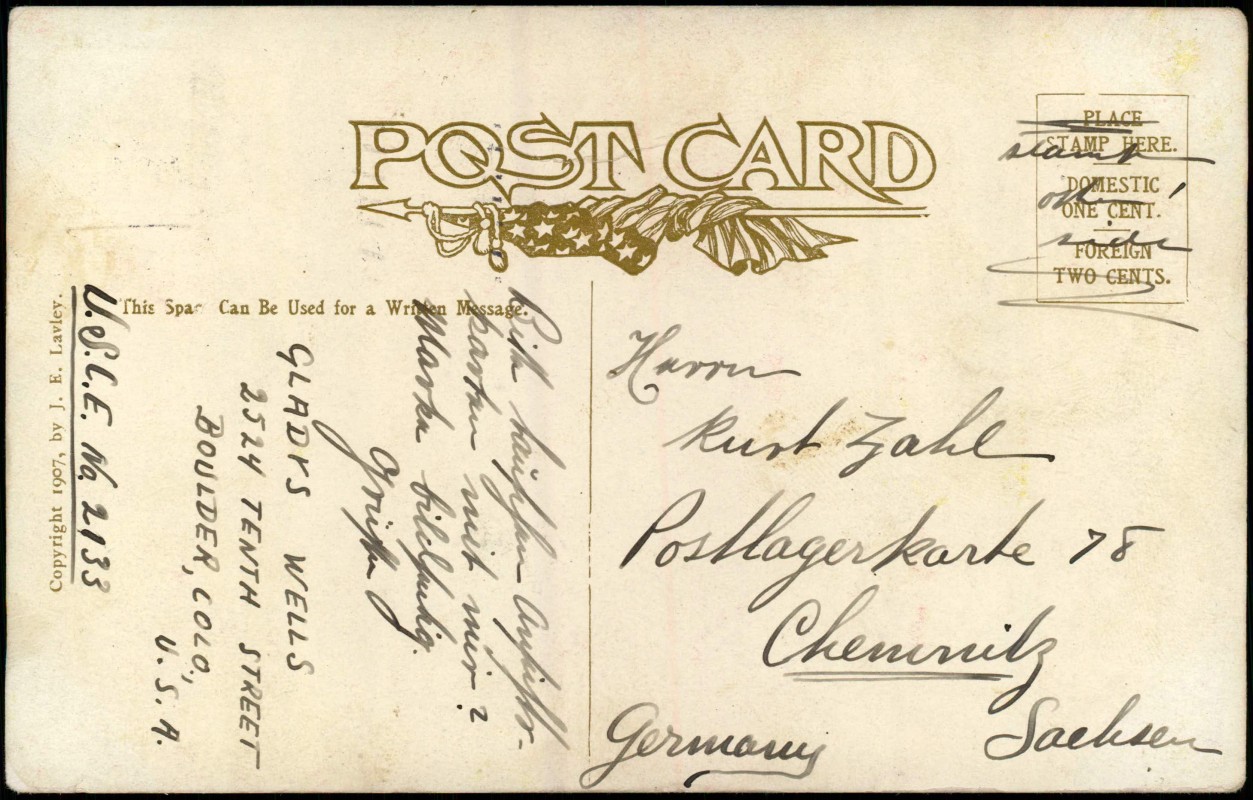 POST CARD
PLACE
STAMP HERE.
DOMESTIC
ONE CENT.
FOREIGN
TWO CENTS.
stamp
other
side
This Space Can Be Used for a Written Message.
Bitte tauschen Ansichts-
karten mit mir?
Marke bildseitig.
GLADYS WELLS
2524 TENTH STREET
BOULDER, COLO.,
U. S. A.
U.S.C.E. No. 2133
Copyright 1907, by J. E. Lavley.
Herrn
Kurt Zahl
Postlagerkarte 78
Chemnitz
Sachsen
Germany